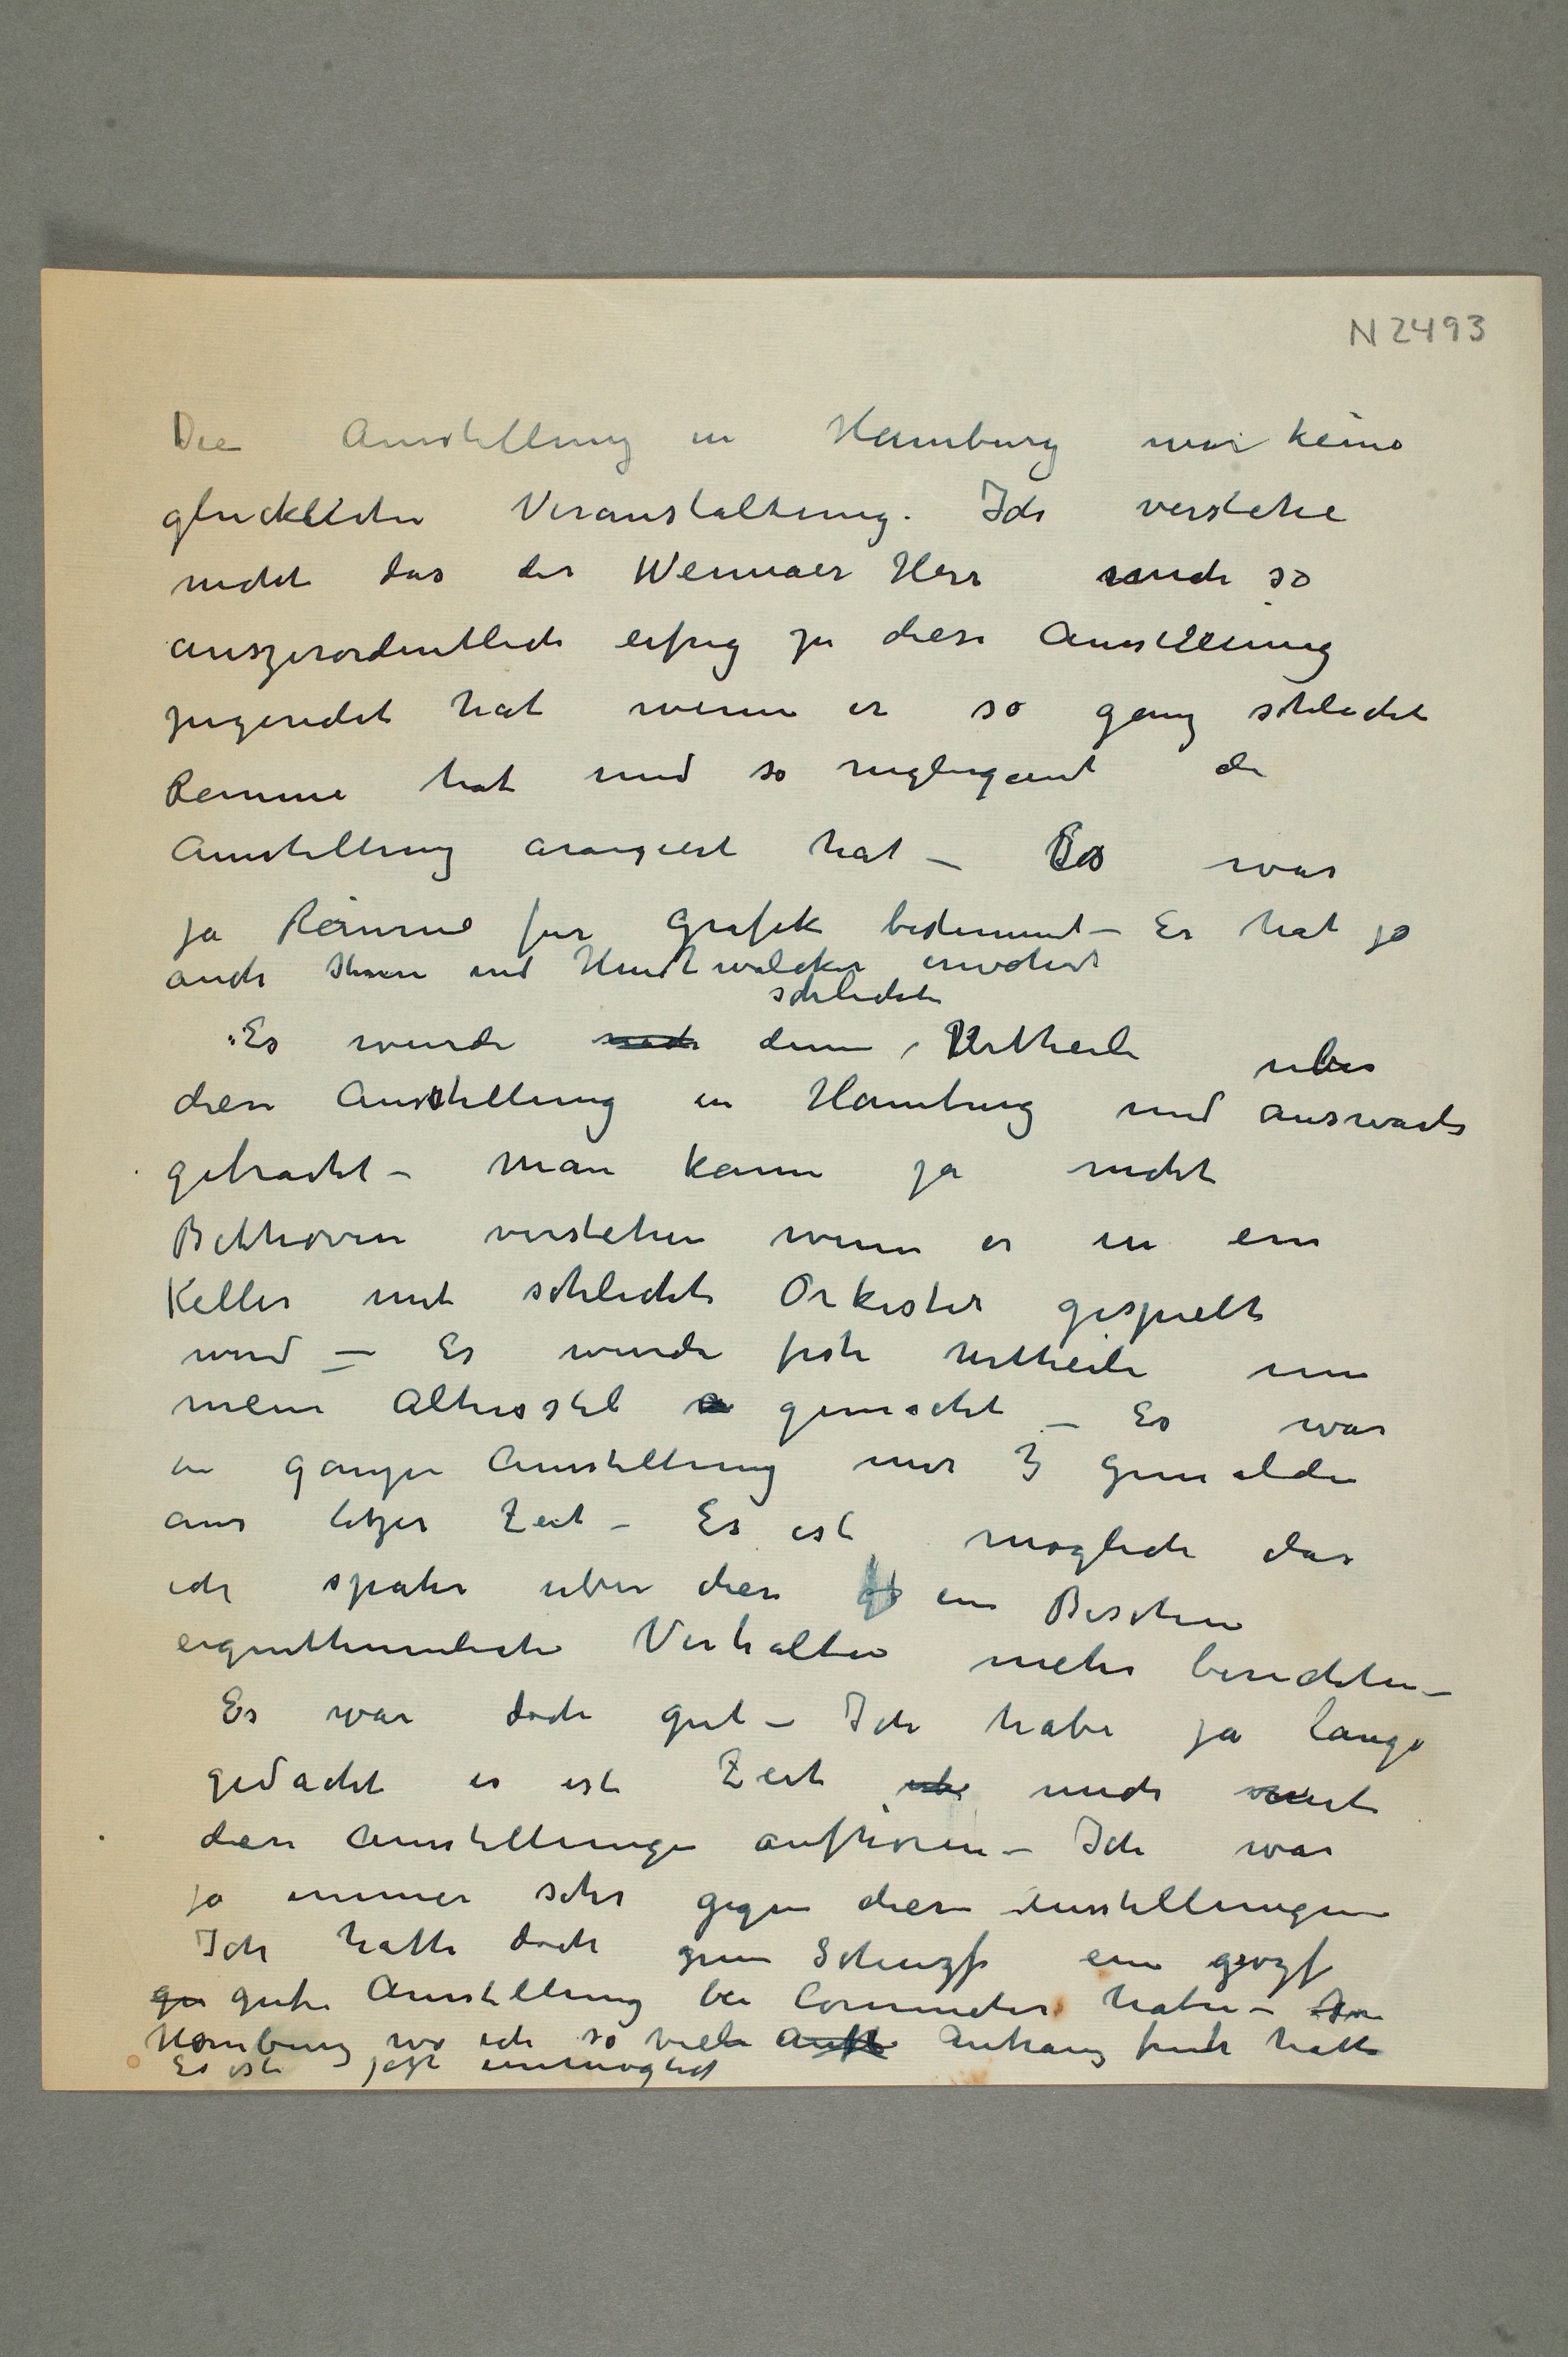 N 2493
Die Ausstellung in Hamburg war keine
glückliche Veranstaltung. Ich verstehe
nicht das der Weimaer Herr mich so
auszerordentlich eifrig zu diese Ausstellung
zugeredet hat wenn er so ganz schlecht
Reume hat und so neglegant die
Ausstellung arangiert hat – Es war
ja Reume für Grafik bestimmt – Er hat ja
auch Ihnen und Hudtwalcker erwähnt
schlechte
Es wurde nach denn, Urtheile uber
diese Ausstellung in Hamburg und auswarts
gebracht – Man kann ja nicht
Bethoven verstehen wenn er in ein
Keller mit schlecht Orkester gespielt
wird – Es wurde feste Urtheile um
mein Altersstil gemacht – Es war
in ganzen Ausstellung nur 3 Gemälde
aus letzer Zeit – Es ist möglich das
ich spater über diese ein Bischen
eigenthumliche Verhalten mehr berichten –
Es war doch gut – Ich habe ja lange
gedacht es ist Zeit mich mit
diese Ausstellungen aufhören – Ich war
ja immer sehr gegen diese Ausstellungen
Ich hatte doch zum Schluzs ein grozse
gu gute Ausstellung bei Commeter haben – In
Hamburg wo ich so viele Anhang früh hatte
Es ist jetzt unmöglich